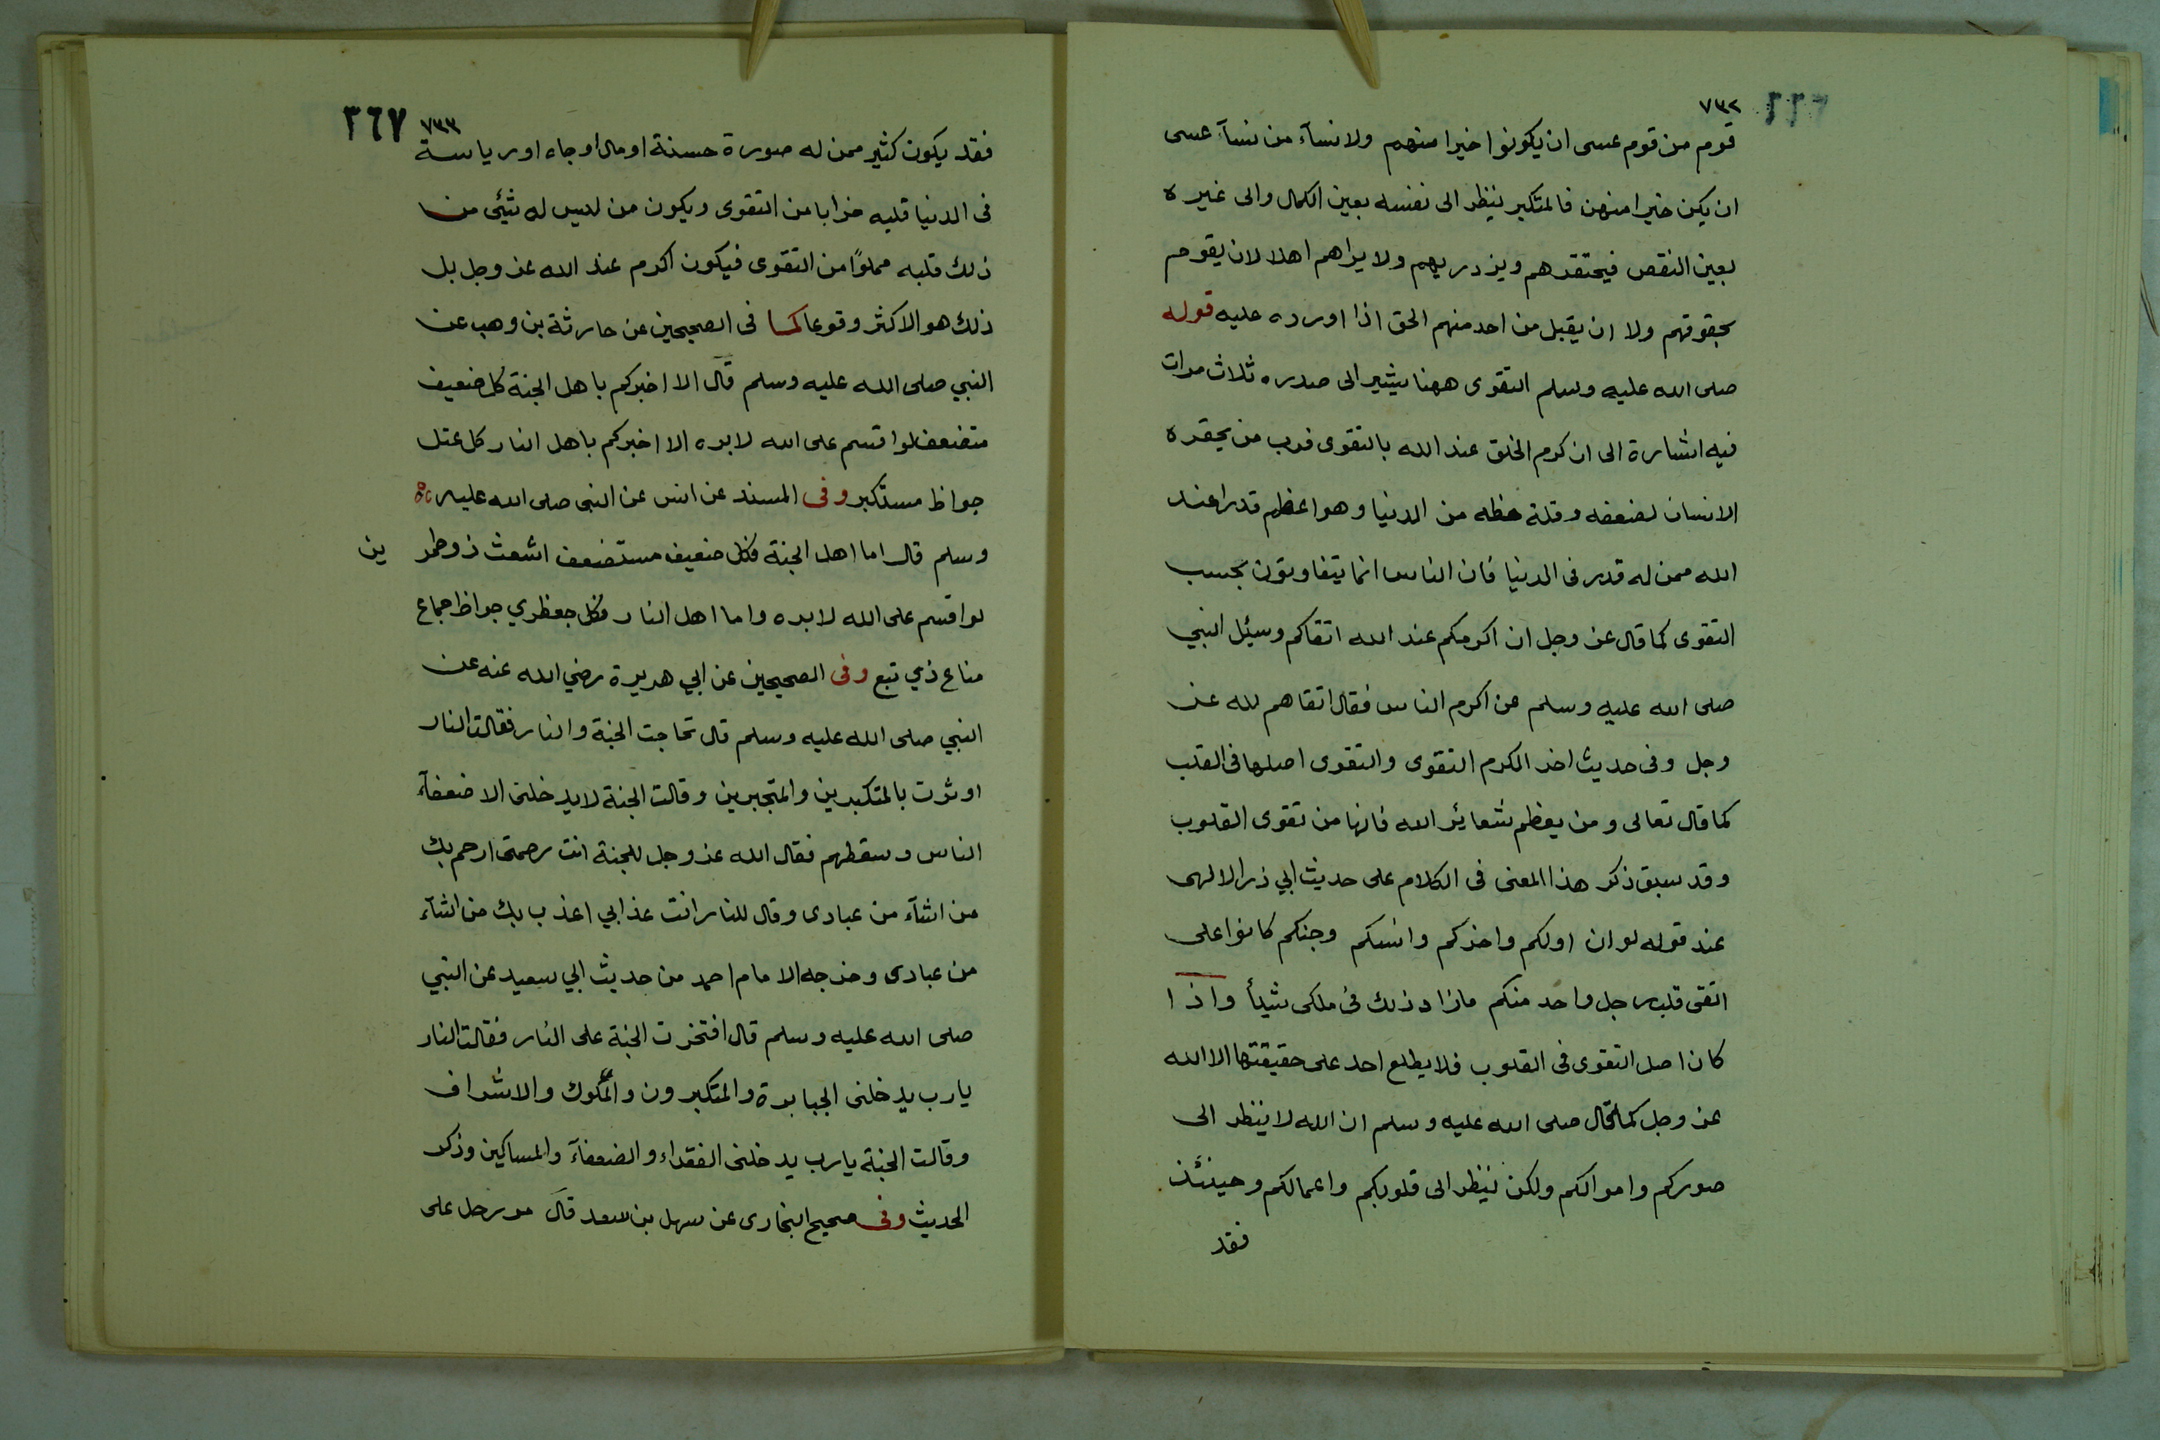 ٧٣٢
قوم من قوم عسى ان يكونوا خيرا منهم ولا نسآء من نسآء عسى
ان يكن خيرا منهن فالمتكبر ينظر الى نفسه بعين الكمال والى غيره
بعين النقص فيحتقرهم ويزدريهم ولا يراهم اهلا لان يقوم
بحقوقهم ولا ان يقبل من احد منهم الحق اذا اورده عليه قوله
صلى الله عليه وسلم التقوى ههنا يشير الى صدره ثلاث مرات
فيه اشارة الى ان كرم الخلق عند الله بالتقوى فرب من يحقره
الانسان لضعفه وقلة حظه من الدنيا وهو اعظم قدرا عند
الله ممن له قدر فى الدنيا فان الناس انما يتفاوتون بحسب
التقوى كما قال عز وجل ان اكرمكم عند الله اتقاكم وسئل النبي
صلى الله عليه وسلم من اكرم الناس فقال اتقاهم لله عز
وجل وفى حديث اخر الكرم التقوى والتقوى اصلها فى القلب
كما قال تعالى ومن يعظم شعاير الله فانها من تقوى القلوب
وقد سبق ذكر هذا المعنى فى الكلام على حديث ابي ذر الالهى
عند قوله لو ان اولكم واخركم وانسكم وجنكم كانوا على
اتقى قلب رجل واحد منكم مازاد ذلك فى ملكى شيأ واذا
كان اصل التقوى فى القلوب فلا يطلع احد على حقيقتها الا الله
عز وجل كما قال صلى الله عليه وسلم ان الله لا ينظر الى
صوركم واموالكم ولكن ينظر الى قلوبكم واعمالكم وحينئذ
فقد
٧٣٣
٣٦٧
فقد يكون كثير ممن له صورة حسنة او مال او جاه او رياسة
فى الدنيا قلبه خرابا من التقوى ويكون من ليس له شئى من
ذلك قلبه مملوًا من التقوى فيكون اكرم عند الله عز وجل بل
ذلك هو الاكثر وقوعا كما فى الصحيحين عن حارثة بن وهب عن
النبي صلى الله عليه وسلم قال الا اخبركم باهل الجنة كل ضعيف
متضعف لو اقسم على الله لابره الا اخبركم باهل النار كل عتل
جواظ مستكبر وفى المسند عن انس عن النبى صلى الله عليه
وسلم قال اما اهل الجنة فكل ضعيف مستضعف اشعث ذو طمر ين
لو اقسم على الله لابره واما اهل النار فكل جعظري جواظ جماع
مناع ذي تبع وفى الصحيحين عن ابي هريرة رضي الله عنه عن
النبي صلى الله عليه وسلم قال تحاجت الجنة والنار فقالت النار
اوثرت بالمتكبرين والمتجبرين وقالت الجنة لا يدخلنى الا ضعفآء
الناس وسقطهم فقال الله عز وجل للجنة انت رحمتى ارحم بك
من اشآء من عبادى وقال للنار انت عذابي اعذب بك من اشآء
من عبادى وخرجه الامام احمد من حديث ابي سعيد عن النبي
صلى الله عليه وسلم قال افتخرت الجنة على النار فقالت النار
يارب يدخلنى الجبابرة والمتكبرون والملوك والاشراف
وقالت الجنة يارب يدخلنى الفقراء والضعفآء والمساكين وذكر
الحديث وفى صحيح البخارى عن سهل بن سعد قال مر رجل على